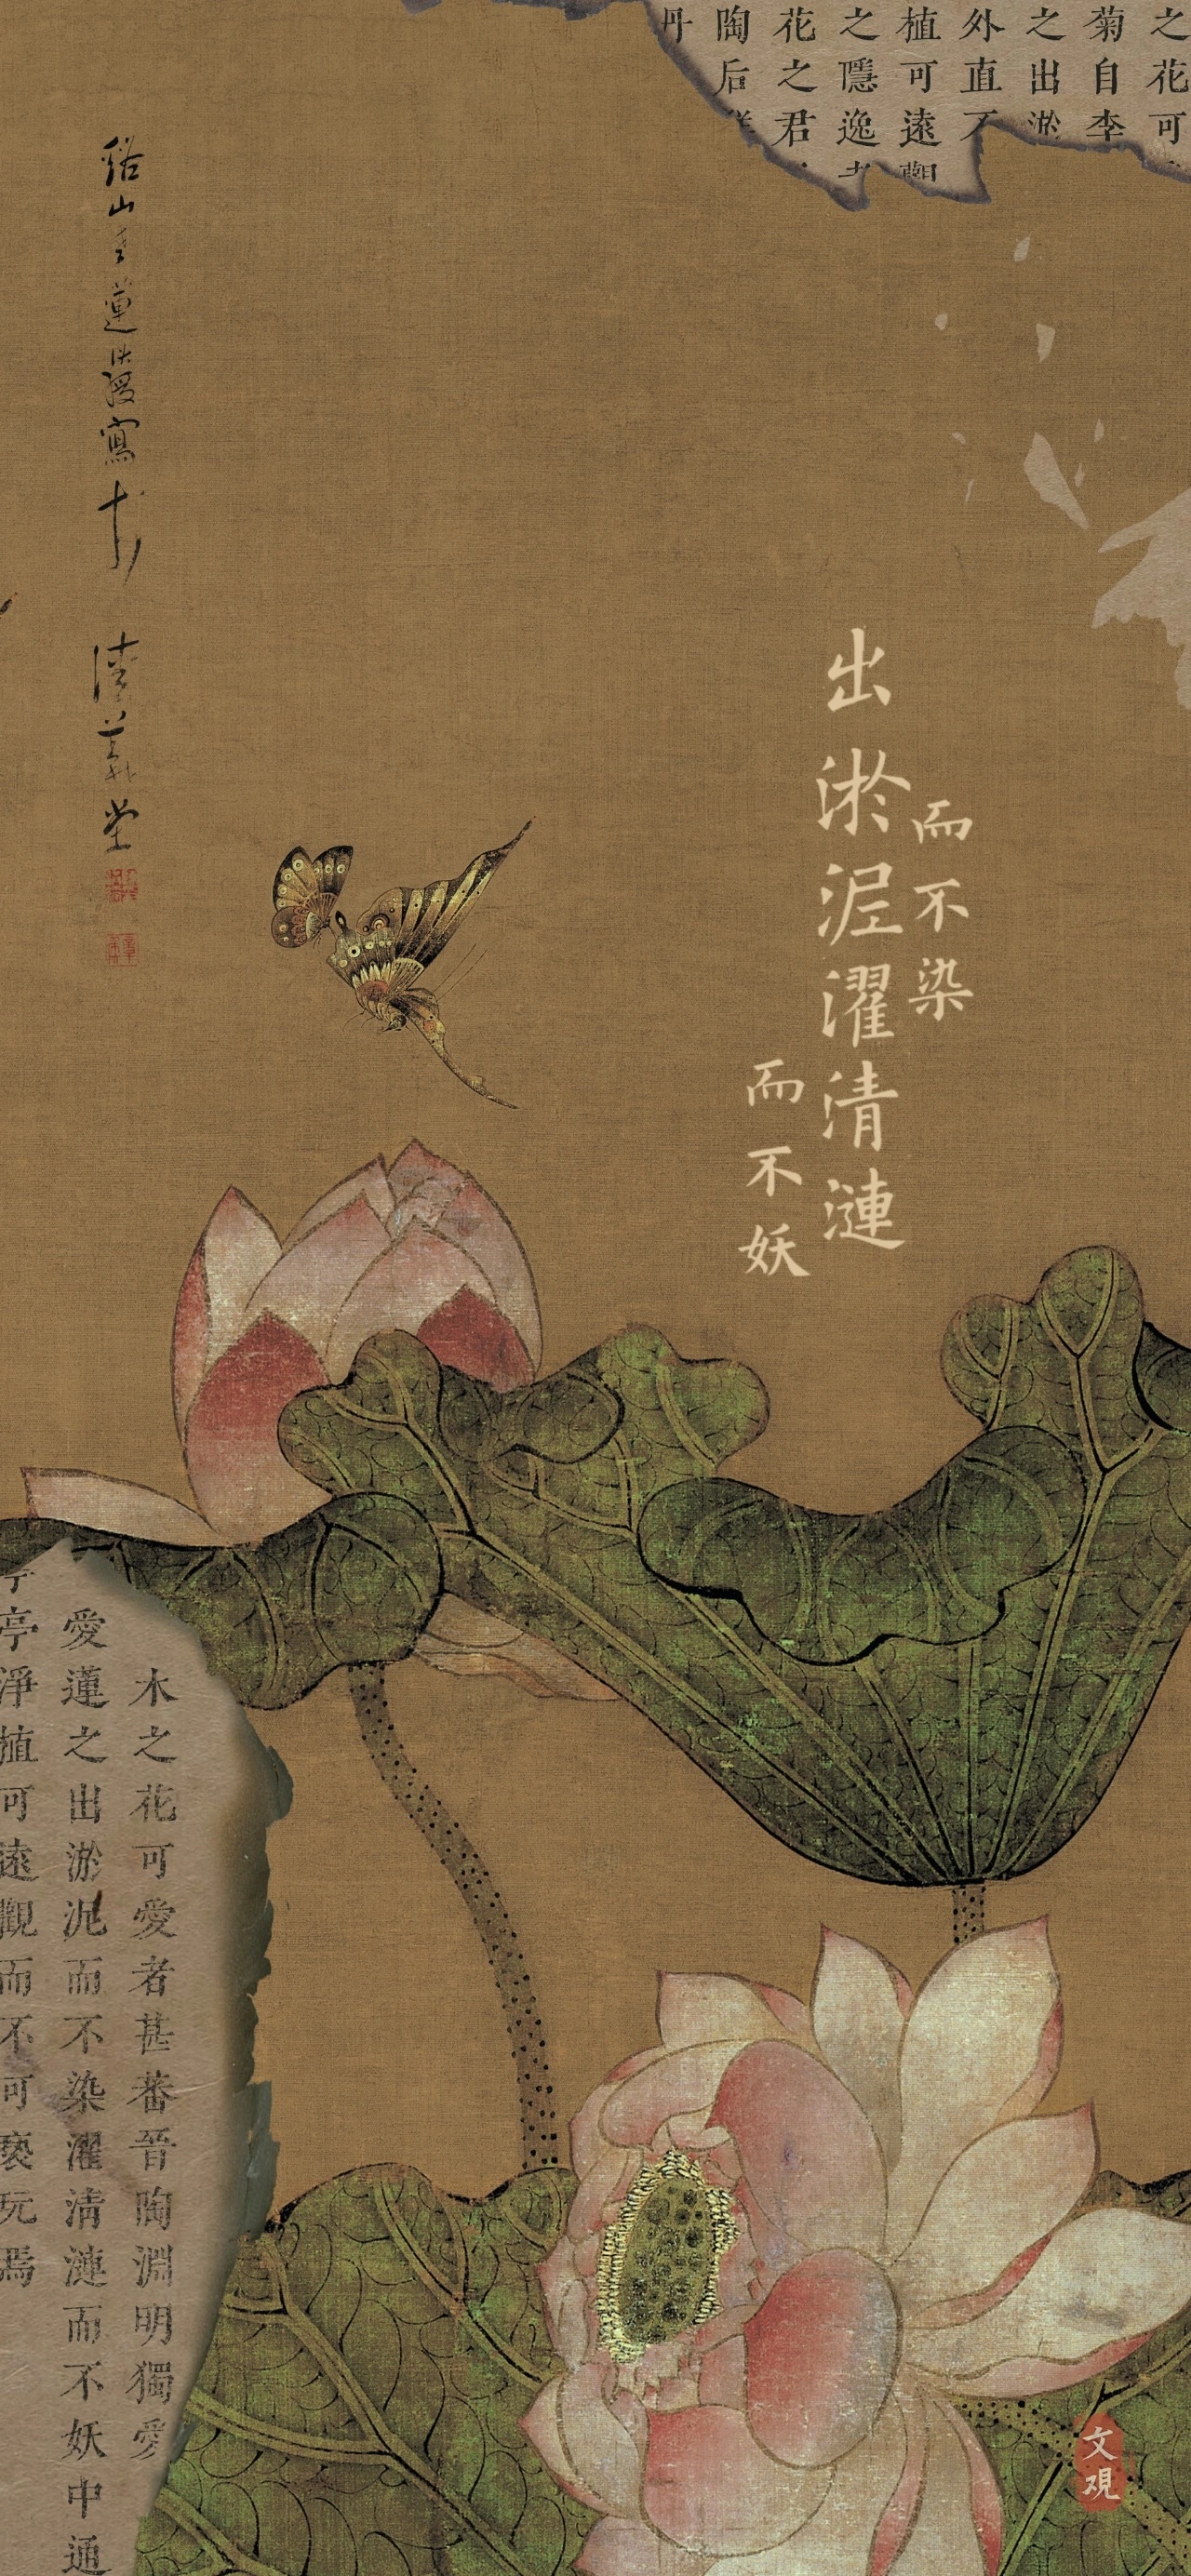 之花可
菊自李
之出淤
外直不
植可遠觀
之隱逸者
花之君
陶后鮮
丹
出淤泥
而不染
濯清漣
而不妖
寫
木之花可愛者甚蕃晉陶淵明獨愛
愛蓮之出淤泥而不染濯清漣而不妖中通
亭淨植可遠觀而不可褻玩焉
文观